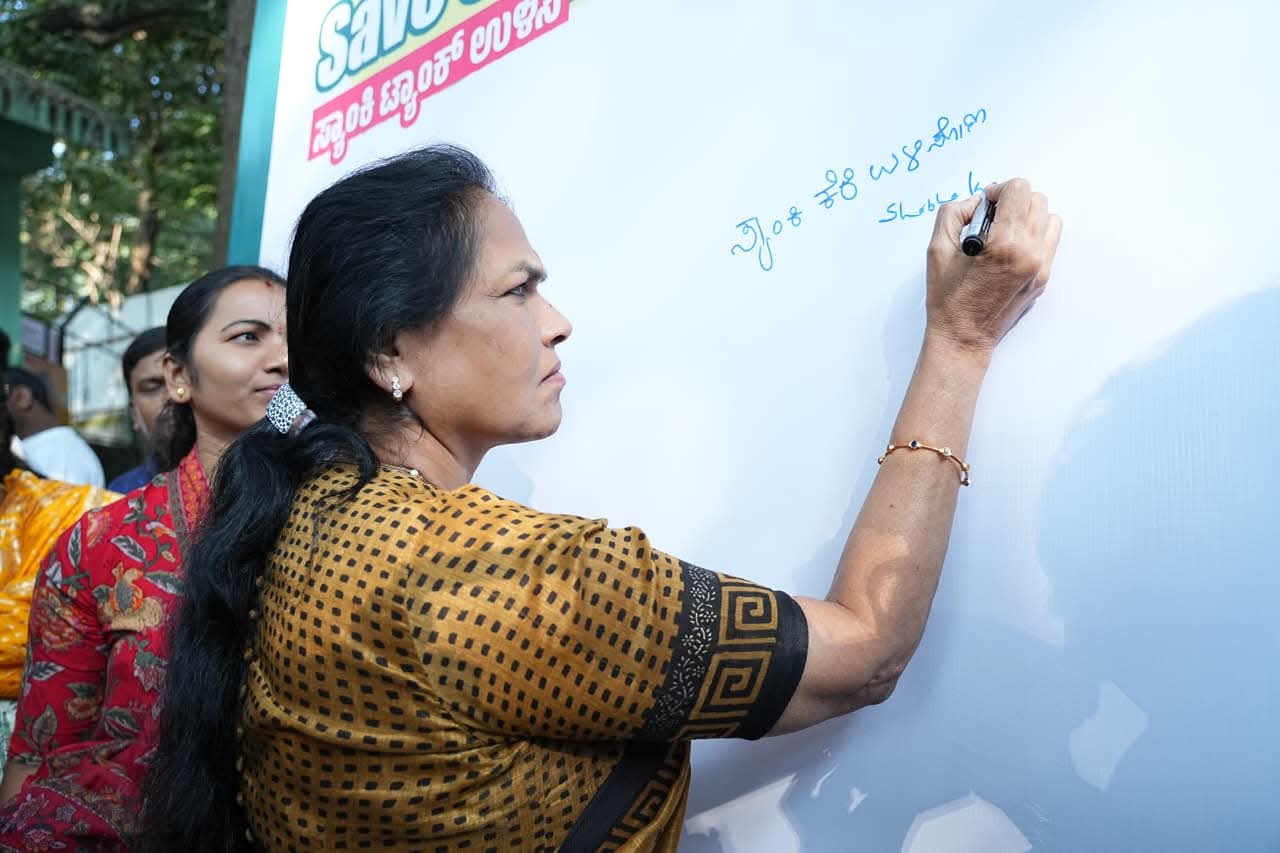 Save
ಸ್ಯಾಂಕಿ ಟ್ಯಾಂಕ್ ಉಳಿಸಿ
ಸ್ಯಾಂಕಿ ಕೆರೆ ಉಳಿಸೋಣ
Shobha K